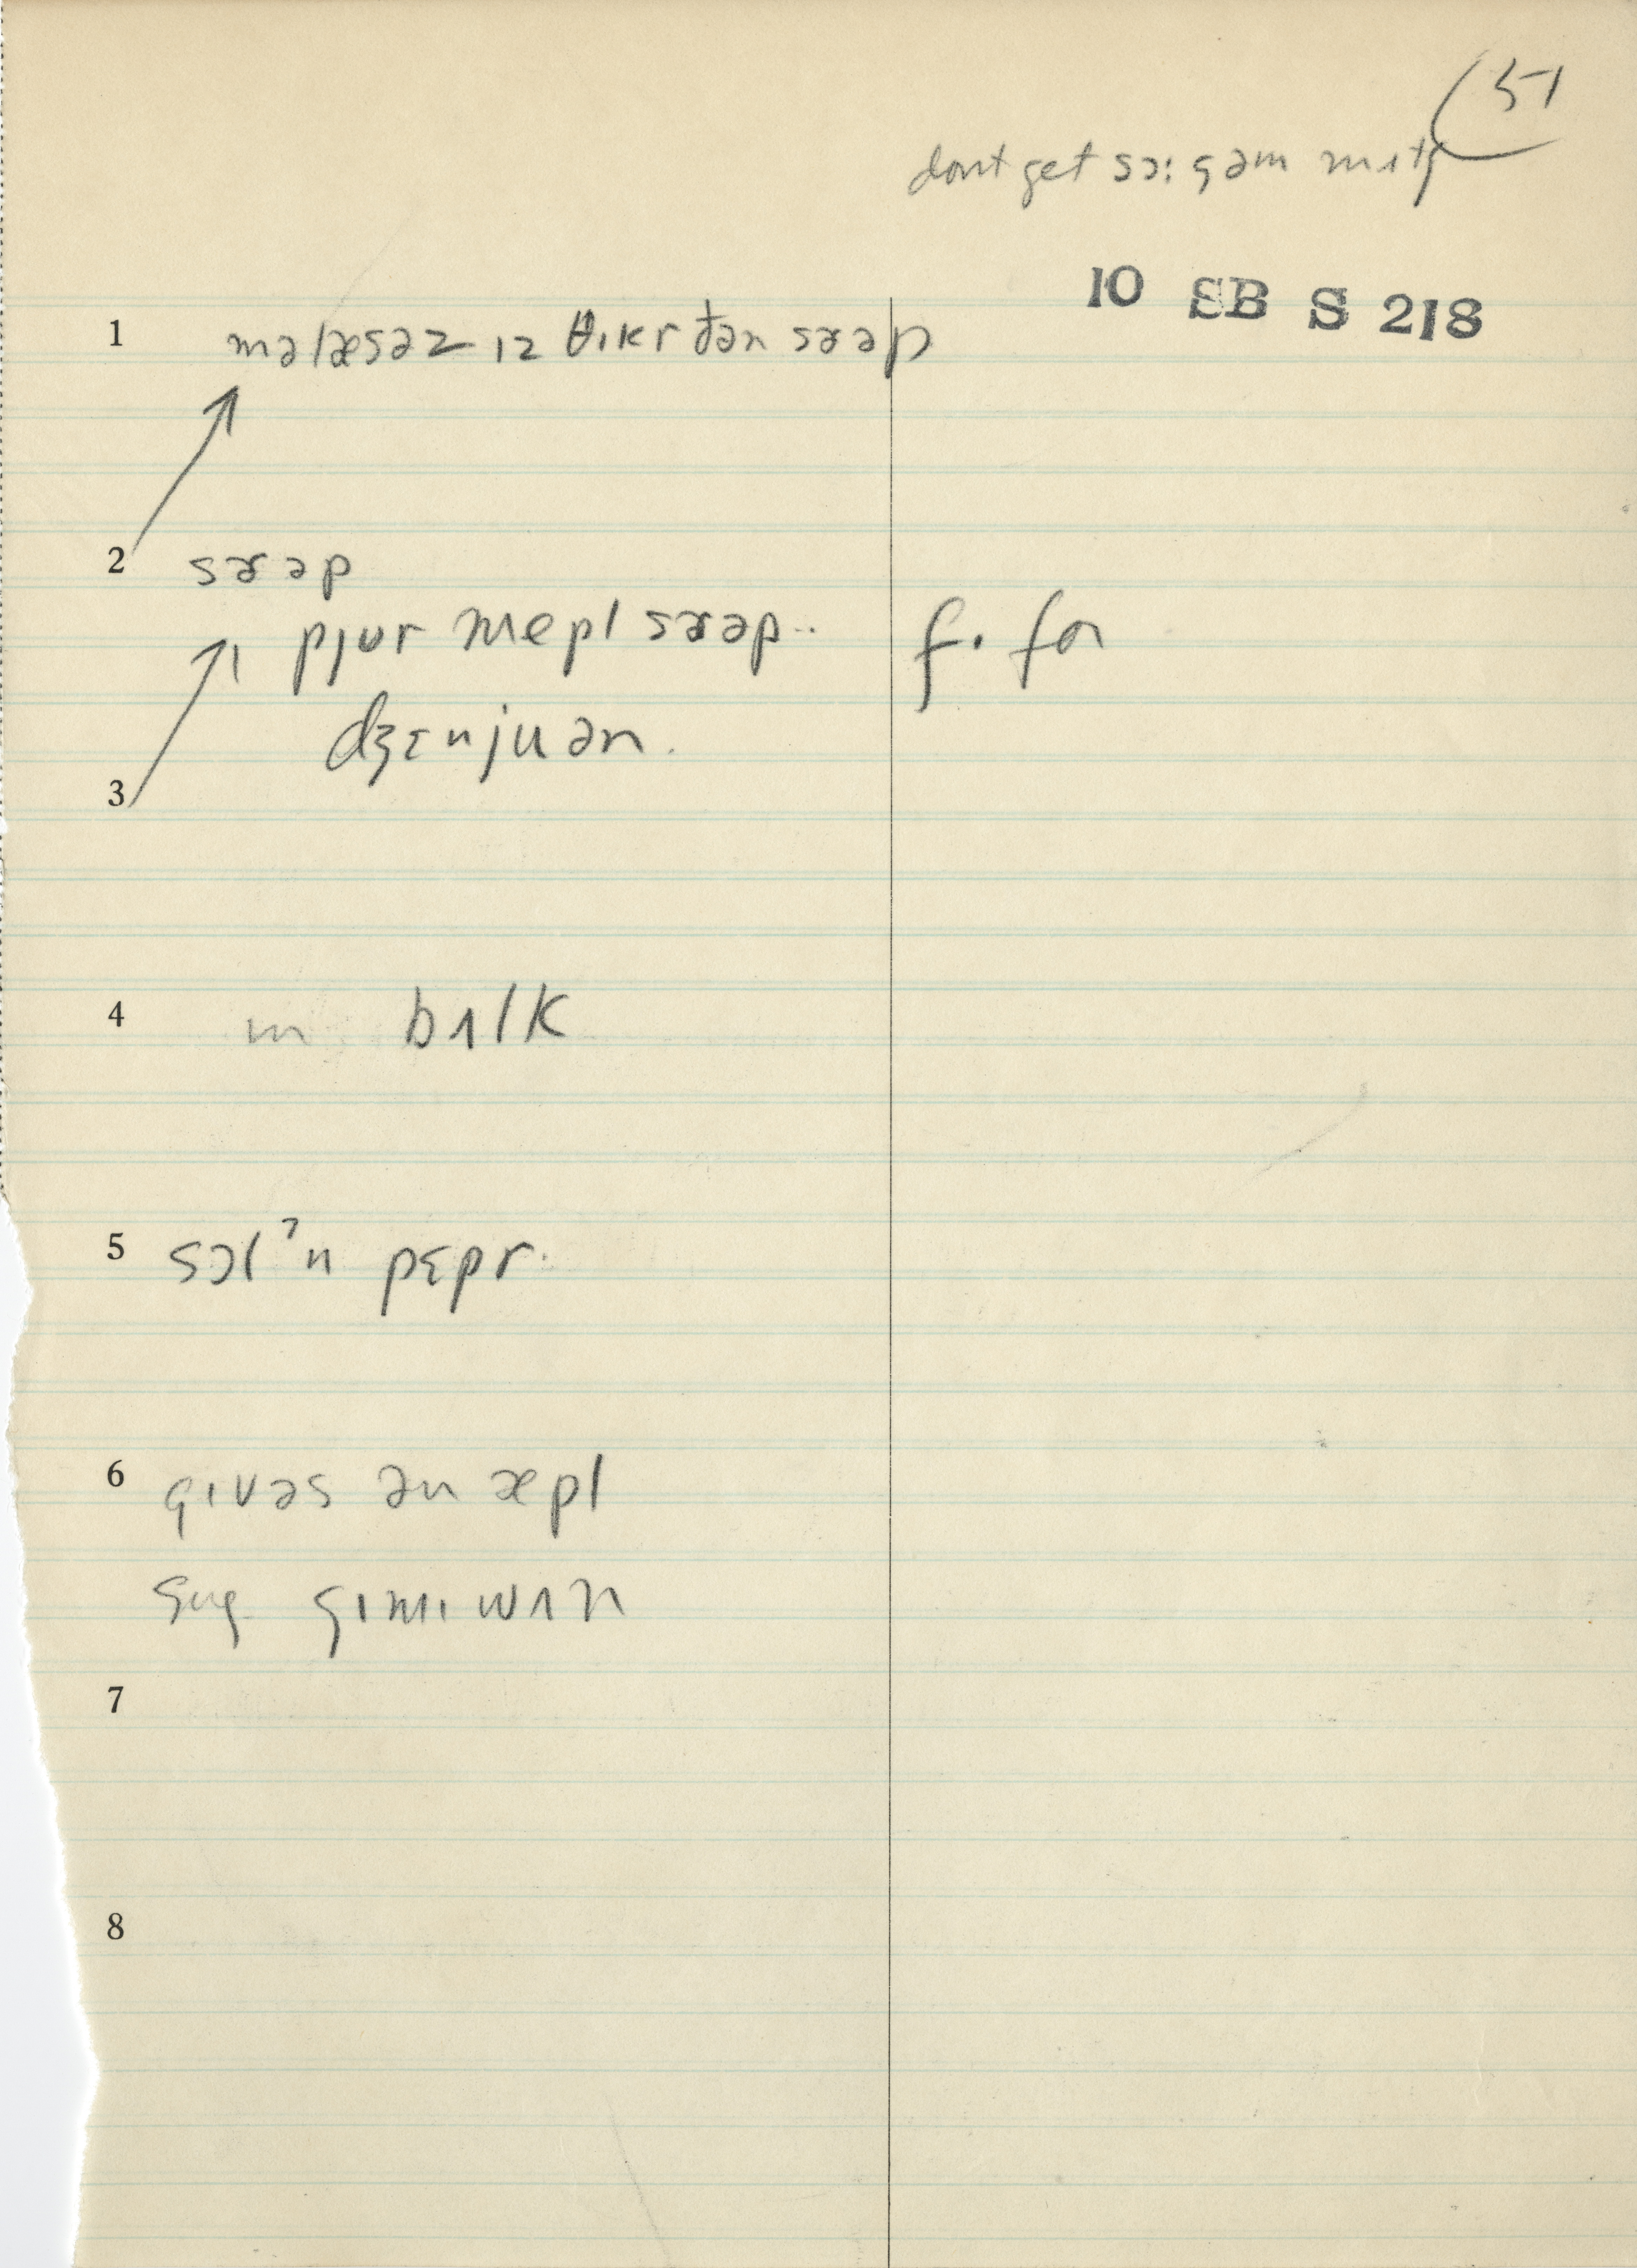 51
dont get sɔ: gəm mʌtʃ
10 SB S 218
1 məlæsəz ɪz θɪkr ðən sɚəp
2 sɚəp
pjʊr mepl sɚəp.. f. for
dʒɛnjuən.
3
4 ɪn bʌlk
5 sɔlʔn pɛpr.
6 gɪvəs ən æpl
sug gɪmɪ wʌn
7
8